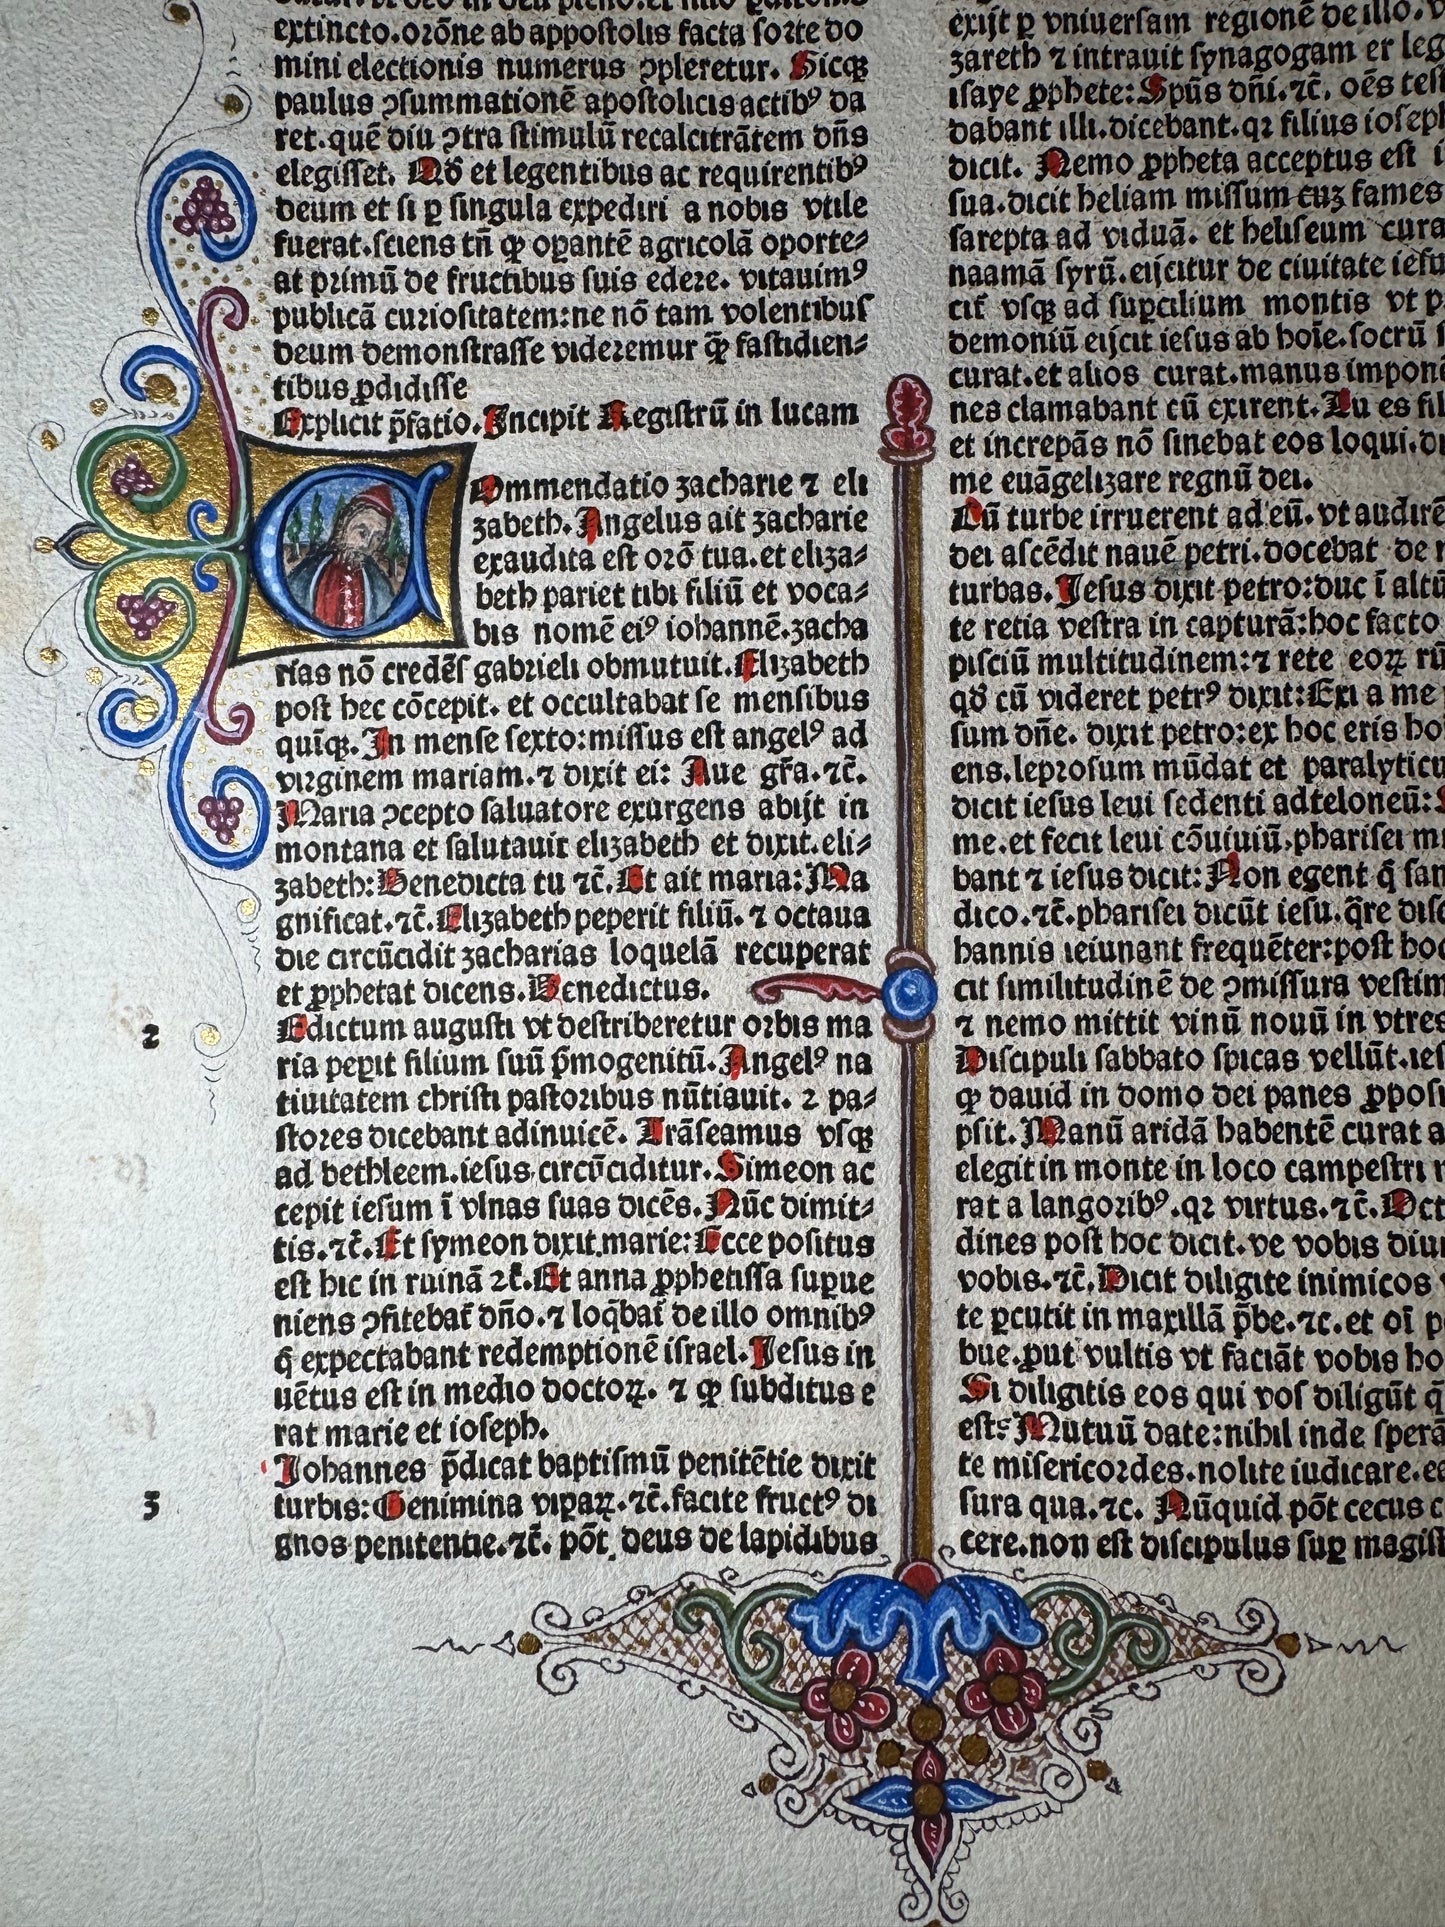 extincto.orōne ab appostolis facta sorte do
mini electionis numerus ↄpleretur. Sicqꝫ
paulus ↄsummationē apostolicis actibꝰ da
ret. quē diu ↄtra stimulū recalcitrātem dn̄s
elegisset. Qđ et legentibus ac requirentibꝰ
deum et si ꝑ singula expediri a nobis vtile
fuerat.sciens tn̄ ꝙ oꝑantē agricolā oporte⸗
at primū de fructibus suis edere. vitauimꝰ
publicā curiositatem:ne nō tam volentibus
deum demonstrasse videremur ꝙ̄ fastidien⸗
tibus ꝓdidisse
Explicit p̄fatio. Incipit Registrū in lucam
Commendatio zacharie ⁊ eli
zabeth. Angelus ait zacharie
exaudita est orō tua.et eliza⸗
beth pariet tibi filiū et voca⸗
bis nomē eiꝰ iohannē.zacha
rias nō credēs gabrieli obmutuit. Elizabeth
post hec cōcepit. et occultabat se mensibus
quīqꝫ. In mense sexto:missus est angelꝰ ad
virginem mariam.⁊ dixit ei: Aue gr̄a.⁊c̄.
Maria ↄcepto saluatore exurgens abijt in
montana et salutauit elizabeth et dixit.eli⸗
zabeth: Benedicta tu ⁊c̄. Et ait maria: Ma
gnificat.⁊c̄. Elizabeth peperit filiū. ⁊ octaua
die circūcidit zacharias loquelā recuperat
et ꝓphetat dicens. Benedictus.
2
Edictum augusti vt describeretur orbis ma
ria peꝑit filium suū p̄mogenitū. Angelꝰ na
tiuitatem christi pastoribus nūtiauit. ⁊ pa⸗
stores dicebant adinuicē. Trāseamus vsqꝫ
ad bethleem.iesus circūciditur. Simeon ac
cepit iesum ī vlnas suas dicēs. Nūc dimit⸗
tis.⁊c̄. Et symeon dixit marie: Ecce positus
est hic in ruinā ⁊c̄. Et anna ꝓphetissa suꝑue
niens ↄfitebat̄ dn̄o.⁊ loq̄bat̄ de illo omnibꝰ
q̄ expectabant redemptionē israel. Jesus in
uētus est in medio doctoꝝ. ⁊ ꝙ subditus e
rat marie et ioseph.
Johannes p̄dicat baptismū penitētie dixit
3
turbis: Genimina viꝑaꝝ.⁊c̄.facite fructꝰ di
gnos penitentie.⁊c̄. pōt deus de lapidibus
exijt ꝑ vniuersam regionē de illo.
zareth ⁊ intrauit synagogam et leg
isaye ꝓphete: Spūs dn̄i.⁊c̄. oēs tes
dabant illi.dicebant.qꝛ filius ioseph
dicit. Nemo ꝓpheta acceptus est i
sua.dicit heliam missum cuꝫ fames
sarepta ad viduā. et heliseum cura
naamā syrū.eijcitur de ciuitate iesu
cit̄ vsqꝫ ad suꝑcilium montis vt p
demoniū eijcit iesus ab hoīe.socrū s
curat.et alios curat.manus impone
nes clamabant cū exirent. Tu es fil
et increpās nō sinebat eos loqui.di
me euāgelizare regnū dei.
Cū turbe irruerent ad eū. vt audirē
dei ascēdit nauē petri.docebat de n
turbas. Jesus dixit petro:duc ī altū
te retia vestra in capturā:hoc facto
pisciū multitudinem:⁊ rete eoꝝ rū
qđ cū videret petrꝰ dixit: Exi a me
sum dn̄e. dixit petro:ex hoc eris ho
ens.leprosum mūdat et paralyticu
dicit iesus leui sedenti adteloneū: S
me.et fecit leui cōuiuiū.pharisei m
bant ⁊ iesus dicit: Non egent q̄ san
dico.⁊c̄.pharisei dicūt iesu.q̄re disc
hannis ieiunant frequēter:post hoc
cit similitudinē de ↄmissura vestim
⁊ nemo mittit vinū nouū in vtres
Discipuli sabbato spicas vellūt.ies
ꝙ dauid in domo dei panes ꝓposi
psit. Manū aridā habentē curat a
elegit in monte in loco campestri
rat a langoribꝰ.qꝛ virtus.⁊c̄. Oct
dines post hoc dicit.ve vobis diui
vobis.⁊c̄. Dicit diligite inimicos
te ꝑcutit in maxillā p̄be.⁊c.et oī p
bue.ꝓut vultis vt faciāt vobis ho
Si diligitis eos qui vos diligūt q̄
est: Mutuū date:nihil inde sperā
te misericordes.nolite iudicare.ea
sura qua.⁊c. Nūquid pōt cecus c
cere.non est discipulus suꝑ magist